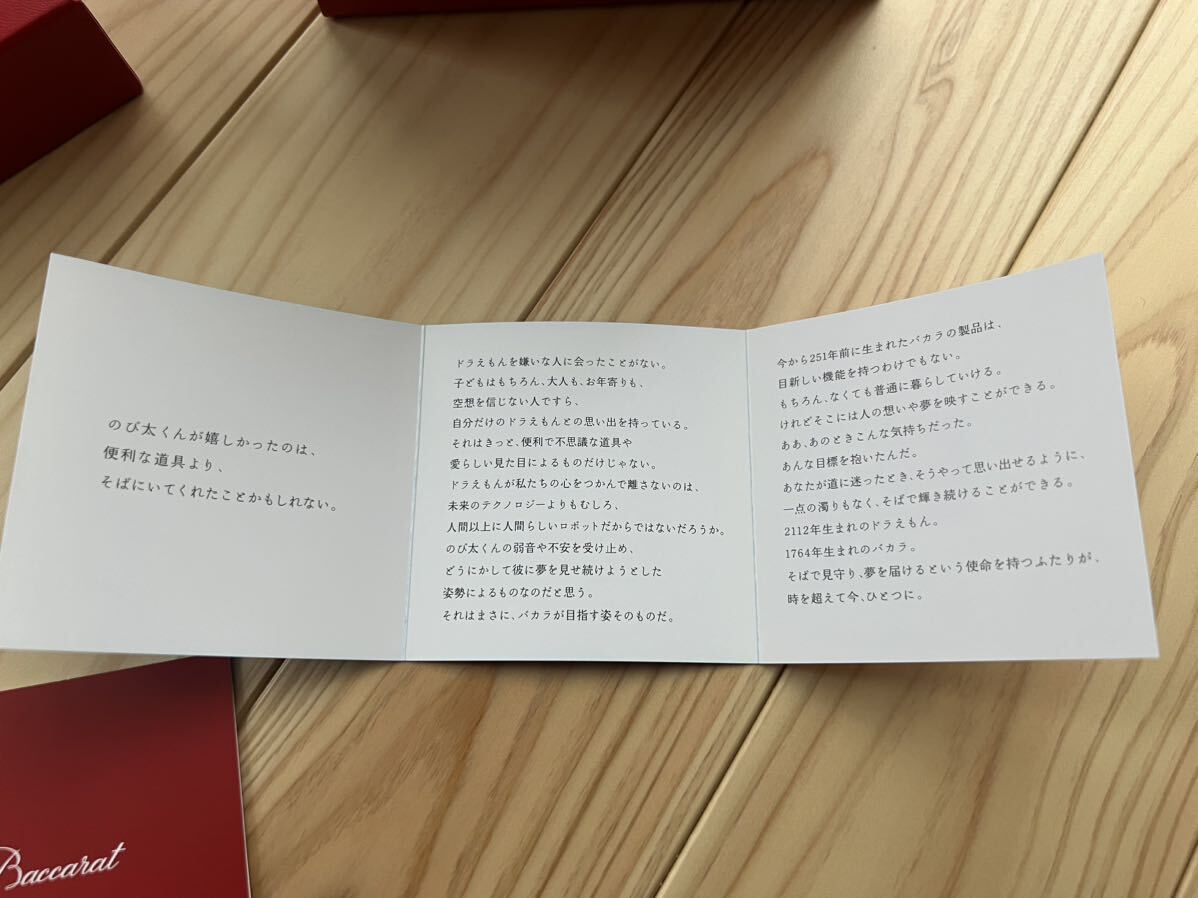 のび太くんが嬉しかったのは、
便利な道具より、
そばにいてくれたことかもしれない。
ドラえもんを嫌いな人に会ったことがない。
子どもはもちろん、大人も、お年寄りも、
空想を信じない人ですら、
自分だけのドラえもんとの思い出を持っている。
それはきっと、便利で不思議な道具や
愛らしい見た目によるものだけじゃない。
ドラえもんが私たちの心をつかんで離さないのは、
未来のテクノロジーよりもむしろ、
人間以上に人間らしいロボットだからではないだろうか。
のび太くんの弱音や不安を受け止め、
どうにかして彼に夢を見せ続けようとした
姿勢によるものなのだと思う。
それはまさに、バカラが目指す姿そのものだ。
今から251年前に生まれたバカラの製品は、
目新しい機能を持つわけでもない。
もちろん、なくても普通に暮らしていける。
けれどそこには人の想いや夢を映すことができる。
ああ、あのときこんな気持ちだった。
あんな目標を抱いたんだ。
あなたが道に迷ったとき、そうやって思い出せるように、
一点の濁りもなく、そばで輝き続けることができる。
2112年生まれのドラえもん。
1764年生まれのバカラ。
そばで見守り、夢を届けるという使命を持つふたりが、
時を超えて今、ひとつに。
Baccarat